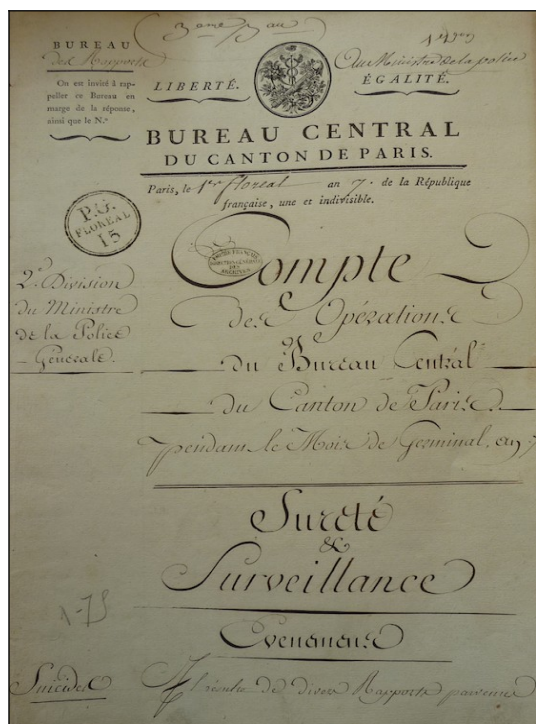 3eme Bau
BUREAU
des Rapports
On est invité à rap-
peller ce Bureau en
marge de la réponse,
ainsi que le N.o
LIBERTÉ.
Au Ministre de la police
ÉGALITÉ.
BUREAU CENTRAL
DU CANTON DE PARIS.
Paris, le 1er floreal an 7. de la République
française, une et indivisible.
P.G.
FLOREAL
15
2e Division
du Ministre
de la Police
Générale.
Compte
des Opérations
du Bureau Central
du Canton de Paris
pendant le Mois de Germinal, an 7
Sureté
&
Surveillance
Evenemens
Suicides
Il résulte de divers Rapports parvenus